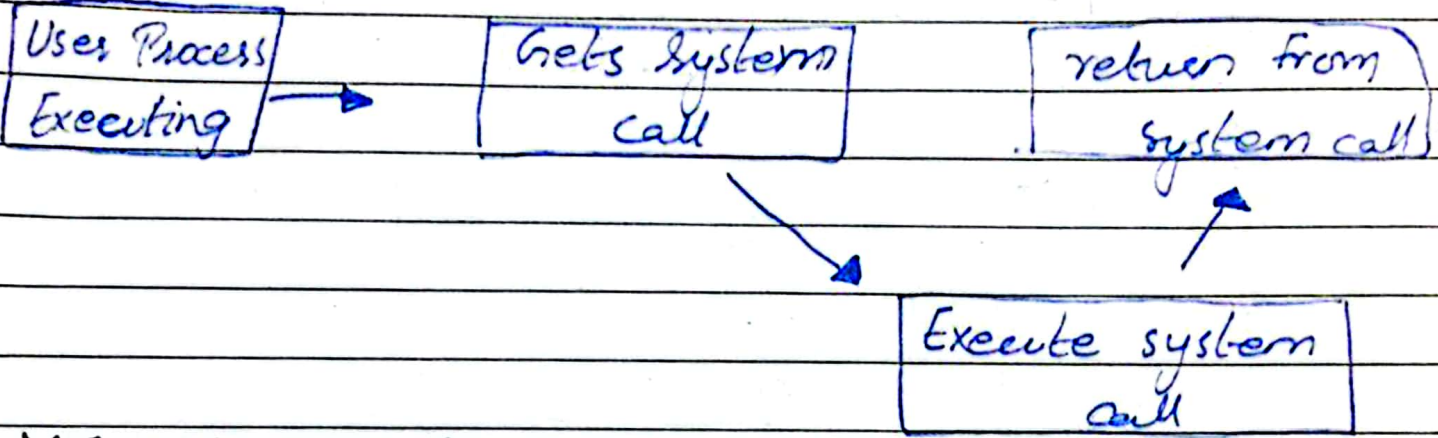 User Process
Executing
Gets System
call
return from
system call
Execute system
call